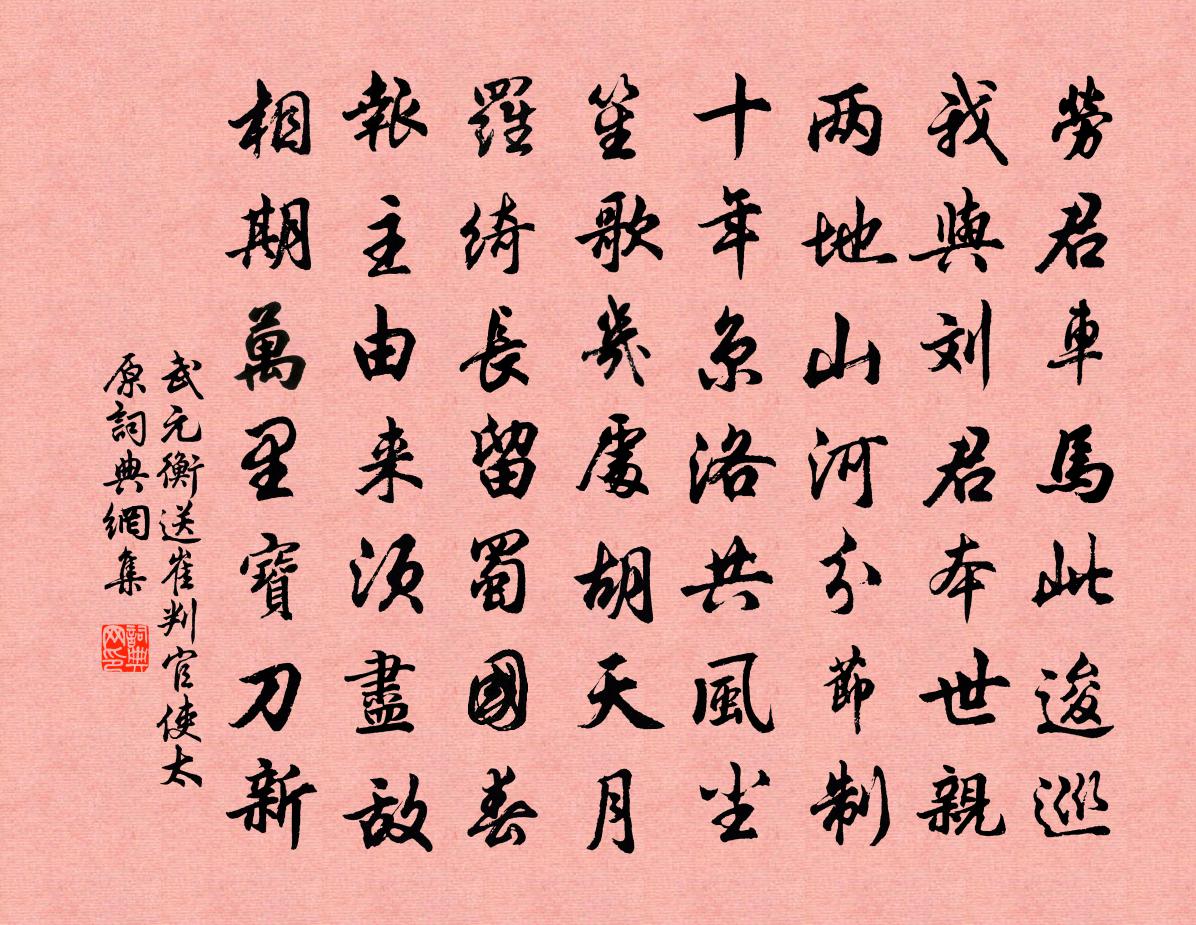 勞君車馬此逡巡
我與刘君本世親
两地山河分節制
十年京洛共風尘
笙歌幾處胡天月
羅綺長留蜀國春
報主由来須盡敵
相期萬里寶刀新
武元衡送崔判官使太
原詞典網集
詞典网印